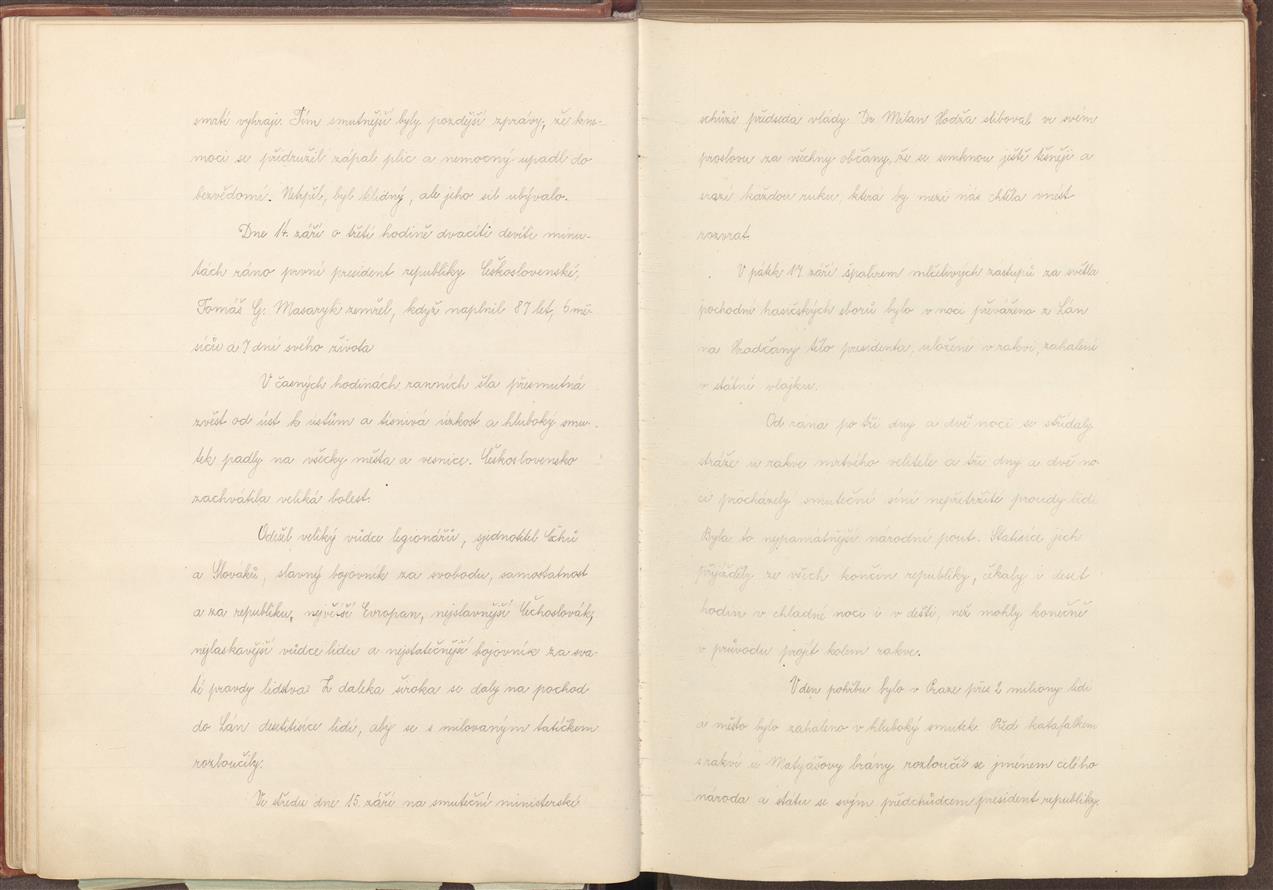 smrtí vyhraje. Tím smutnější byly pozdější zprávy, že k ne-
moci se přidružil zápal plic a nemocný upadl do
bezvědomí. Netrpěl, byl klidný, ale jeho sil ubývalo.
Dne 14. září o třetí hodině dvacíti devíti minu-
tách ráno první president republiky Československé,
Tomáš G. Masaryk zemřel, když naplnil 87 let, 6 mě-
síců a 7 dní svého života
V časných hodinách ranních šla přesmutná
zvěst od úst k ústům a tísnivá úzkost a hluboký smu-
tek padly na všecky města a vesnice. Československo
zachvátila veliká bolest.
Odešel veliký vůdce legionářů, sjednotitel Čechů
a Slováků, slavný bojovník za svobodu, samostatnost
a za republiku, největší Evropan, nejslavnější Čechoslovák,
nejlaskavější vůdce lidu a nejstatečnější bojovník za sva-
té pravdy lidstva. Z daleka široka se daly na pochod
do Lán desetitisíce lidí, aby se s milovaným tatíčkem
rozloučily.
Ve středu dne 15. září na smuteční ministerské
schůzi předseda vlády Dr. Milan Hodža sliboval ve svém
proslovu za všechny občany, že se semknou ještě těsněji a
srazí každou ruku, která by mezi nás chtěla vnést
rozvrat.
V pátek 17 září špalírem mlčelivých zástupů za světla
pochodní hasičských sborů bylo v noci převáženo z Lán
na Hradčany tělo presidenta, uložené v rakvi, zahalené
v státní vlajku.
Od rána po tři dny a dvě noci se střídaly
stráže u rakve mrtvého velitele a tři dny a dvě no
ci procházely smuteční síní nepřetržité proudy lidí
Byla to nejpamátnější národní pout. Statisíce jich
přijížděly ze všech končin republiky, čekaly v deset
hodin v chladné noci i v dešti, než mohly konečně
v průvodu projít kolem rakve.
V den pohřbu bylo v Praze přes 2 miliony lidí
a město bylo zahaleno v hluboký smutek. Před katafalkem
s rakví u Matyášovy brány rozloučil se jménem celého
národa a státu se svým předchůdcem president republiky